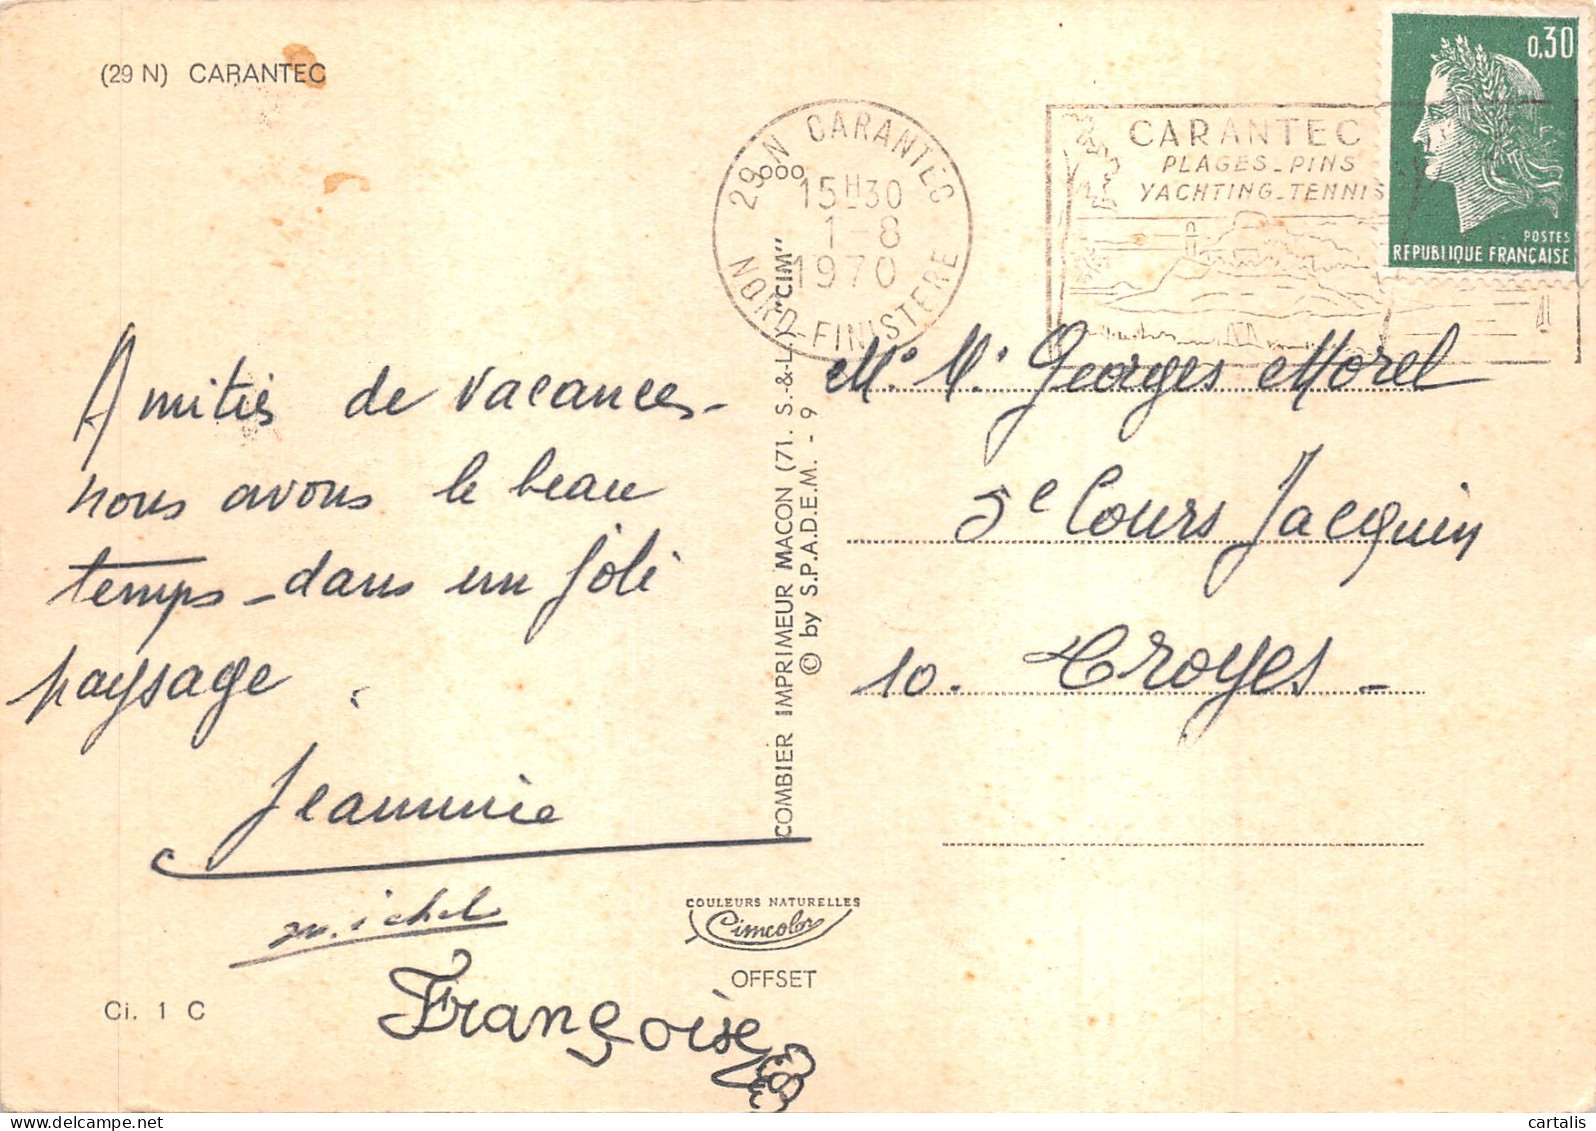 (29 N) CARANTEC
29 N CARANTEC
000
15H30
1-8
1970
NORD-FINISTERE
CARANTEC
PLAGES_PINS
YACHTING_TENNIS
0,30
POSTES
REPUBLIQUE FRANÇAISE
Amitiés de vacances_
nous avons le beau
temps _ dans un joli
paysage.
Jeannine
michel
Françoise
COMBIER IMPRIMEUR MACON (71. S.-&-L.) "CIM"
© by S.P.A.D.E.M. - 9
Mr. M. Georges Morel
5e Cours Jacquin
10. Troyes_
COULEURS NATURELLES
Cimcolor
OFFSET
Ci. 1 C
cartalis